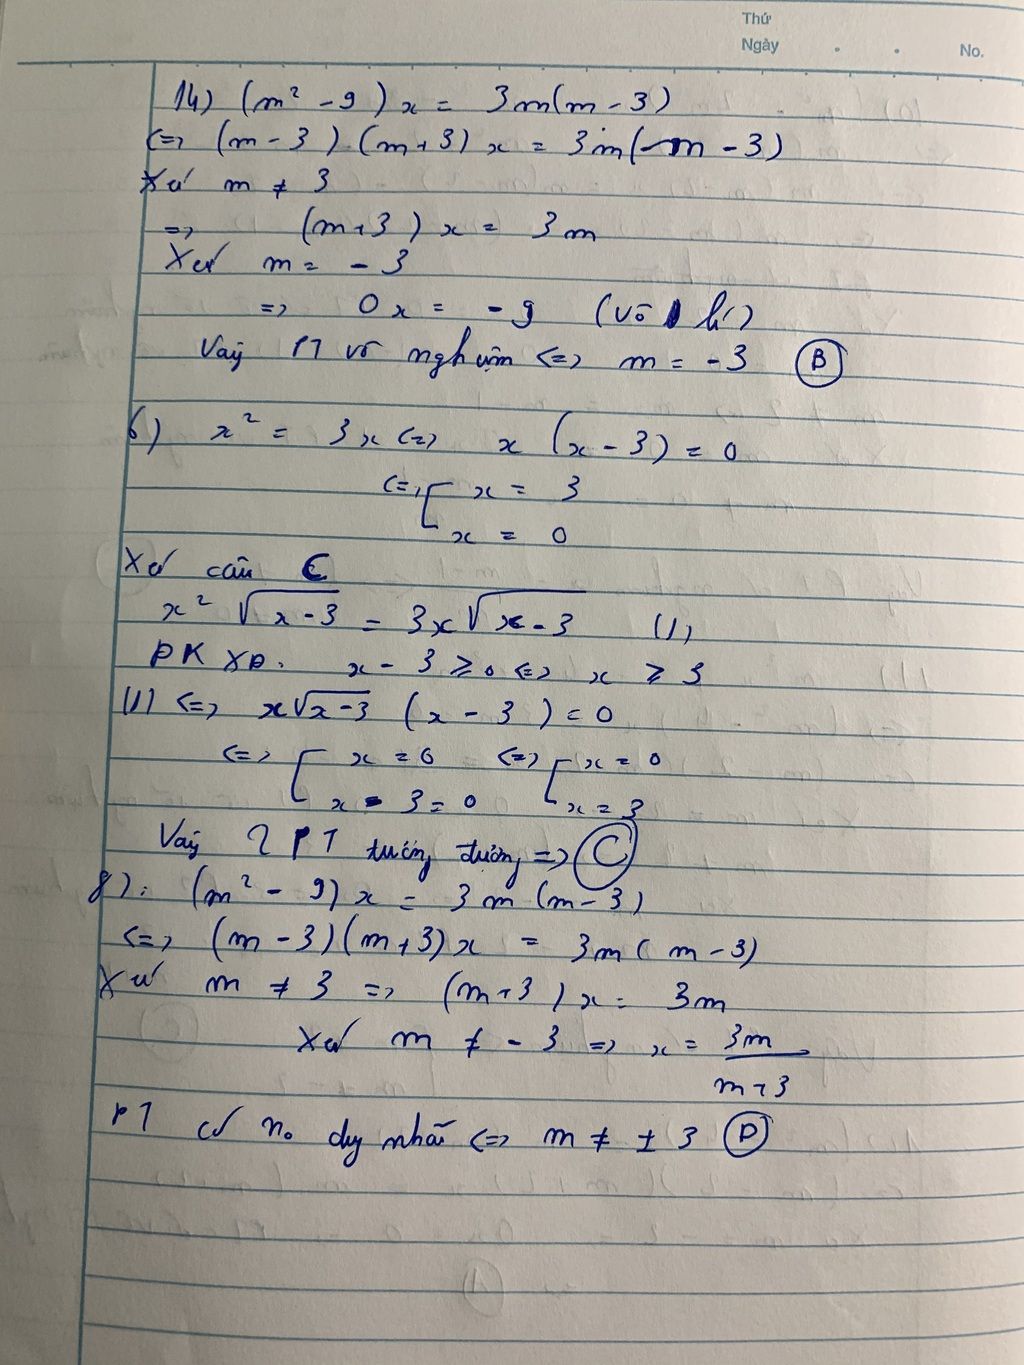 Thứ
Ngày . . No.
14) (m² - 9) x = 3m(m - 3)
<=> (m - 3) . (m + 3) x = 3m(m - 3)
Xét m ≠ 3
=> (m + 3) x = 3m
Xét m = - 3
=> 0x = - 9 (vô lí)
Vậy PT vô nghiệm <=> m = - 3 (B)
6) x² = 3x <=> x (x - 3) = 0
<=> [ x = 3
x = 0
Xét câu C
x² √x - 3 = 3x √x - 3 (1)
ĐKXĐ: x - 3 ≥ 0 <=> x ≥ 3
(1) <=> x√x-3 (x - 3) = 0
<=> [ x = 0 <=> [ x = 0
x - 3 = 0 x = 3
Vậy 2 PT tương đương => (C)
8): (m² - 9) x = 3m (m - 3)
<=> (m - 3)(m + 3) x = 3m (m - 3)
Xét m ≠ 3 => (m + 3) x = 3m
Xét m ≠ - 3 => x = 3m
m + 3
PT có n₀ duy nhất <=> m ≠ ± 3 (D)